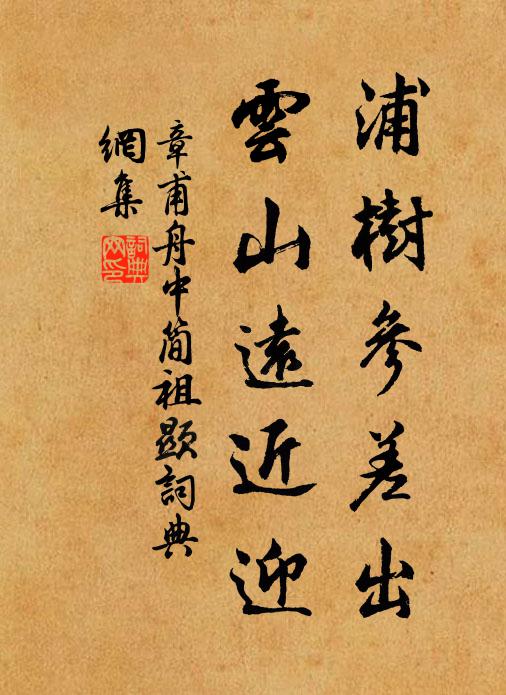 浦樹參差出
雲山遠近迎
章甫舟中簡祖顯詞典
網集
詞典
网印